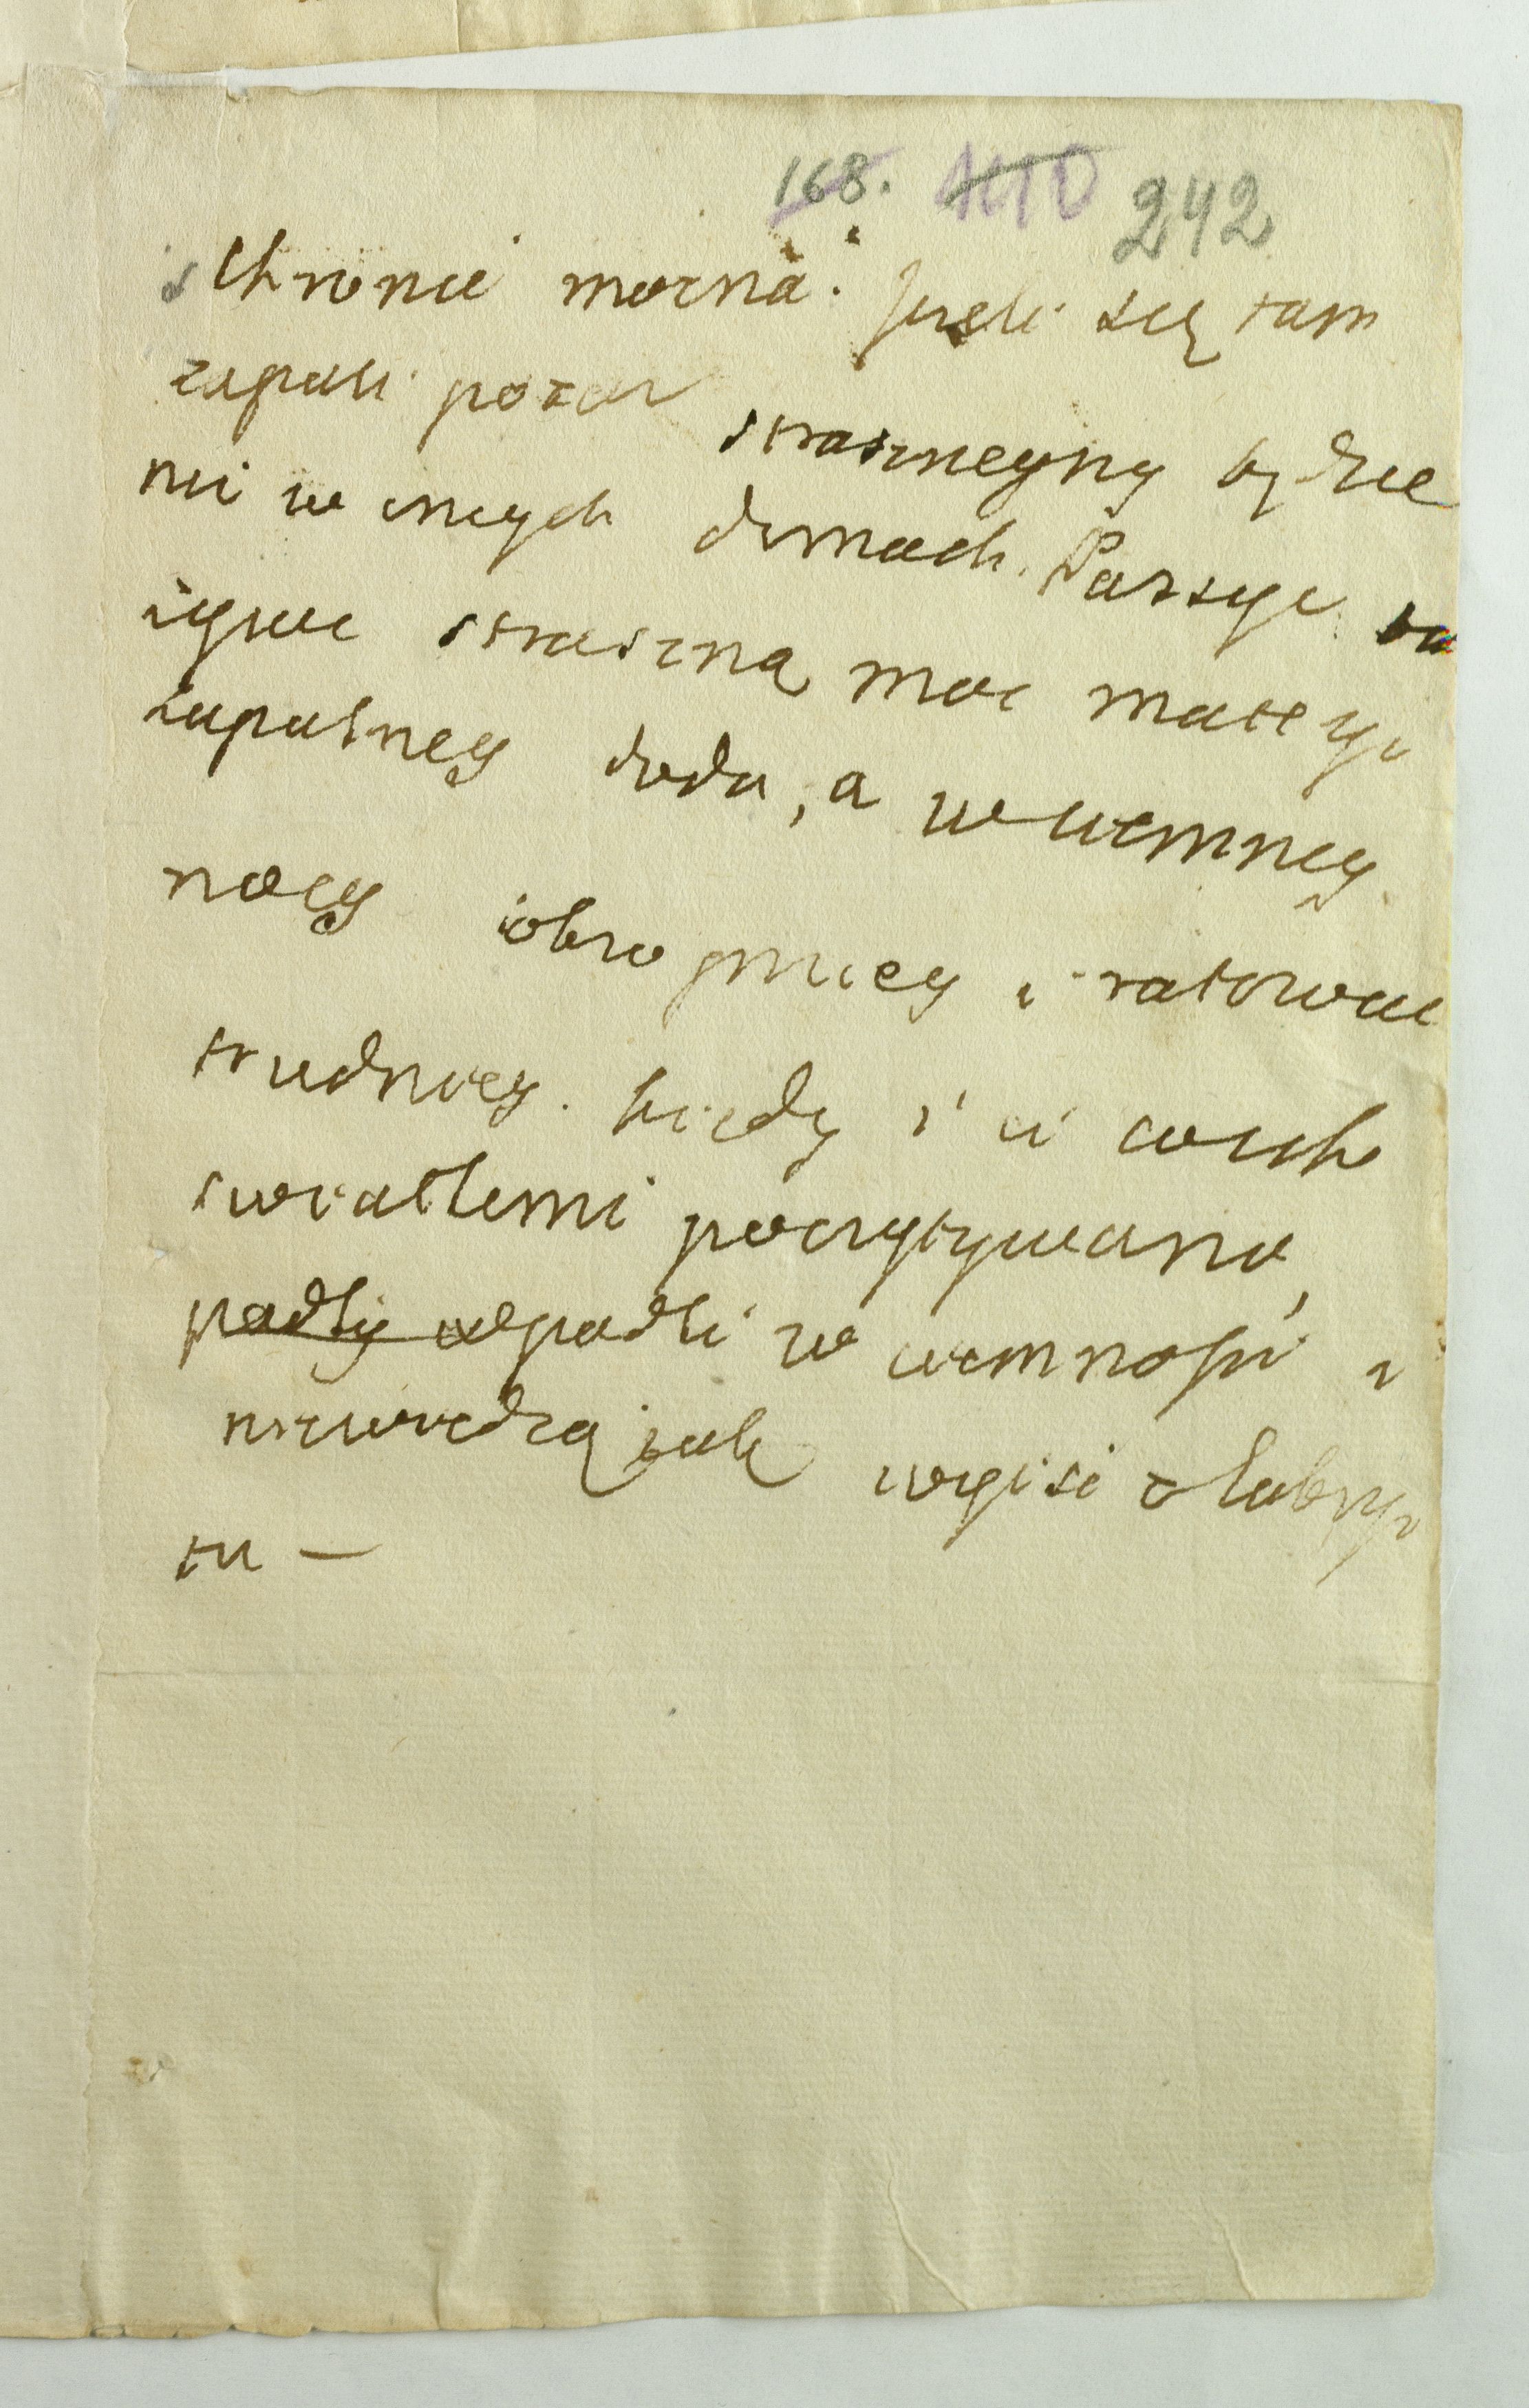 168. 242
schronić można. jeżeli się tam
zapali pożar straszneyszy będzie
niż w innych domach. Passye
żywe straszną moc
zapalney doda, a w ciemney
nocy i obro i ratować
trudniey. kiedy i ci co
swiatłemi poczytywano,
padły wpadli w ciemność i
niewiedzą jak wyiść z labiryn
tu —